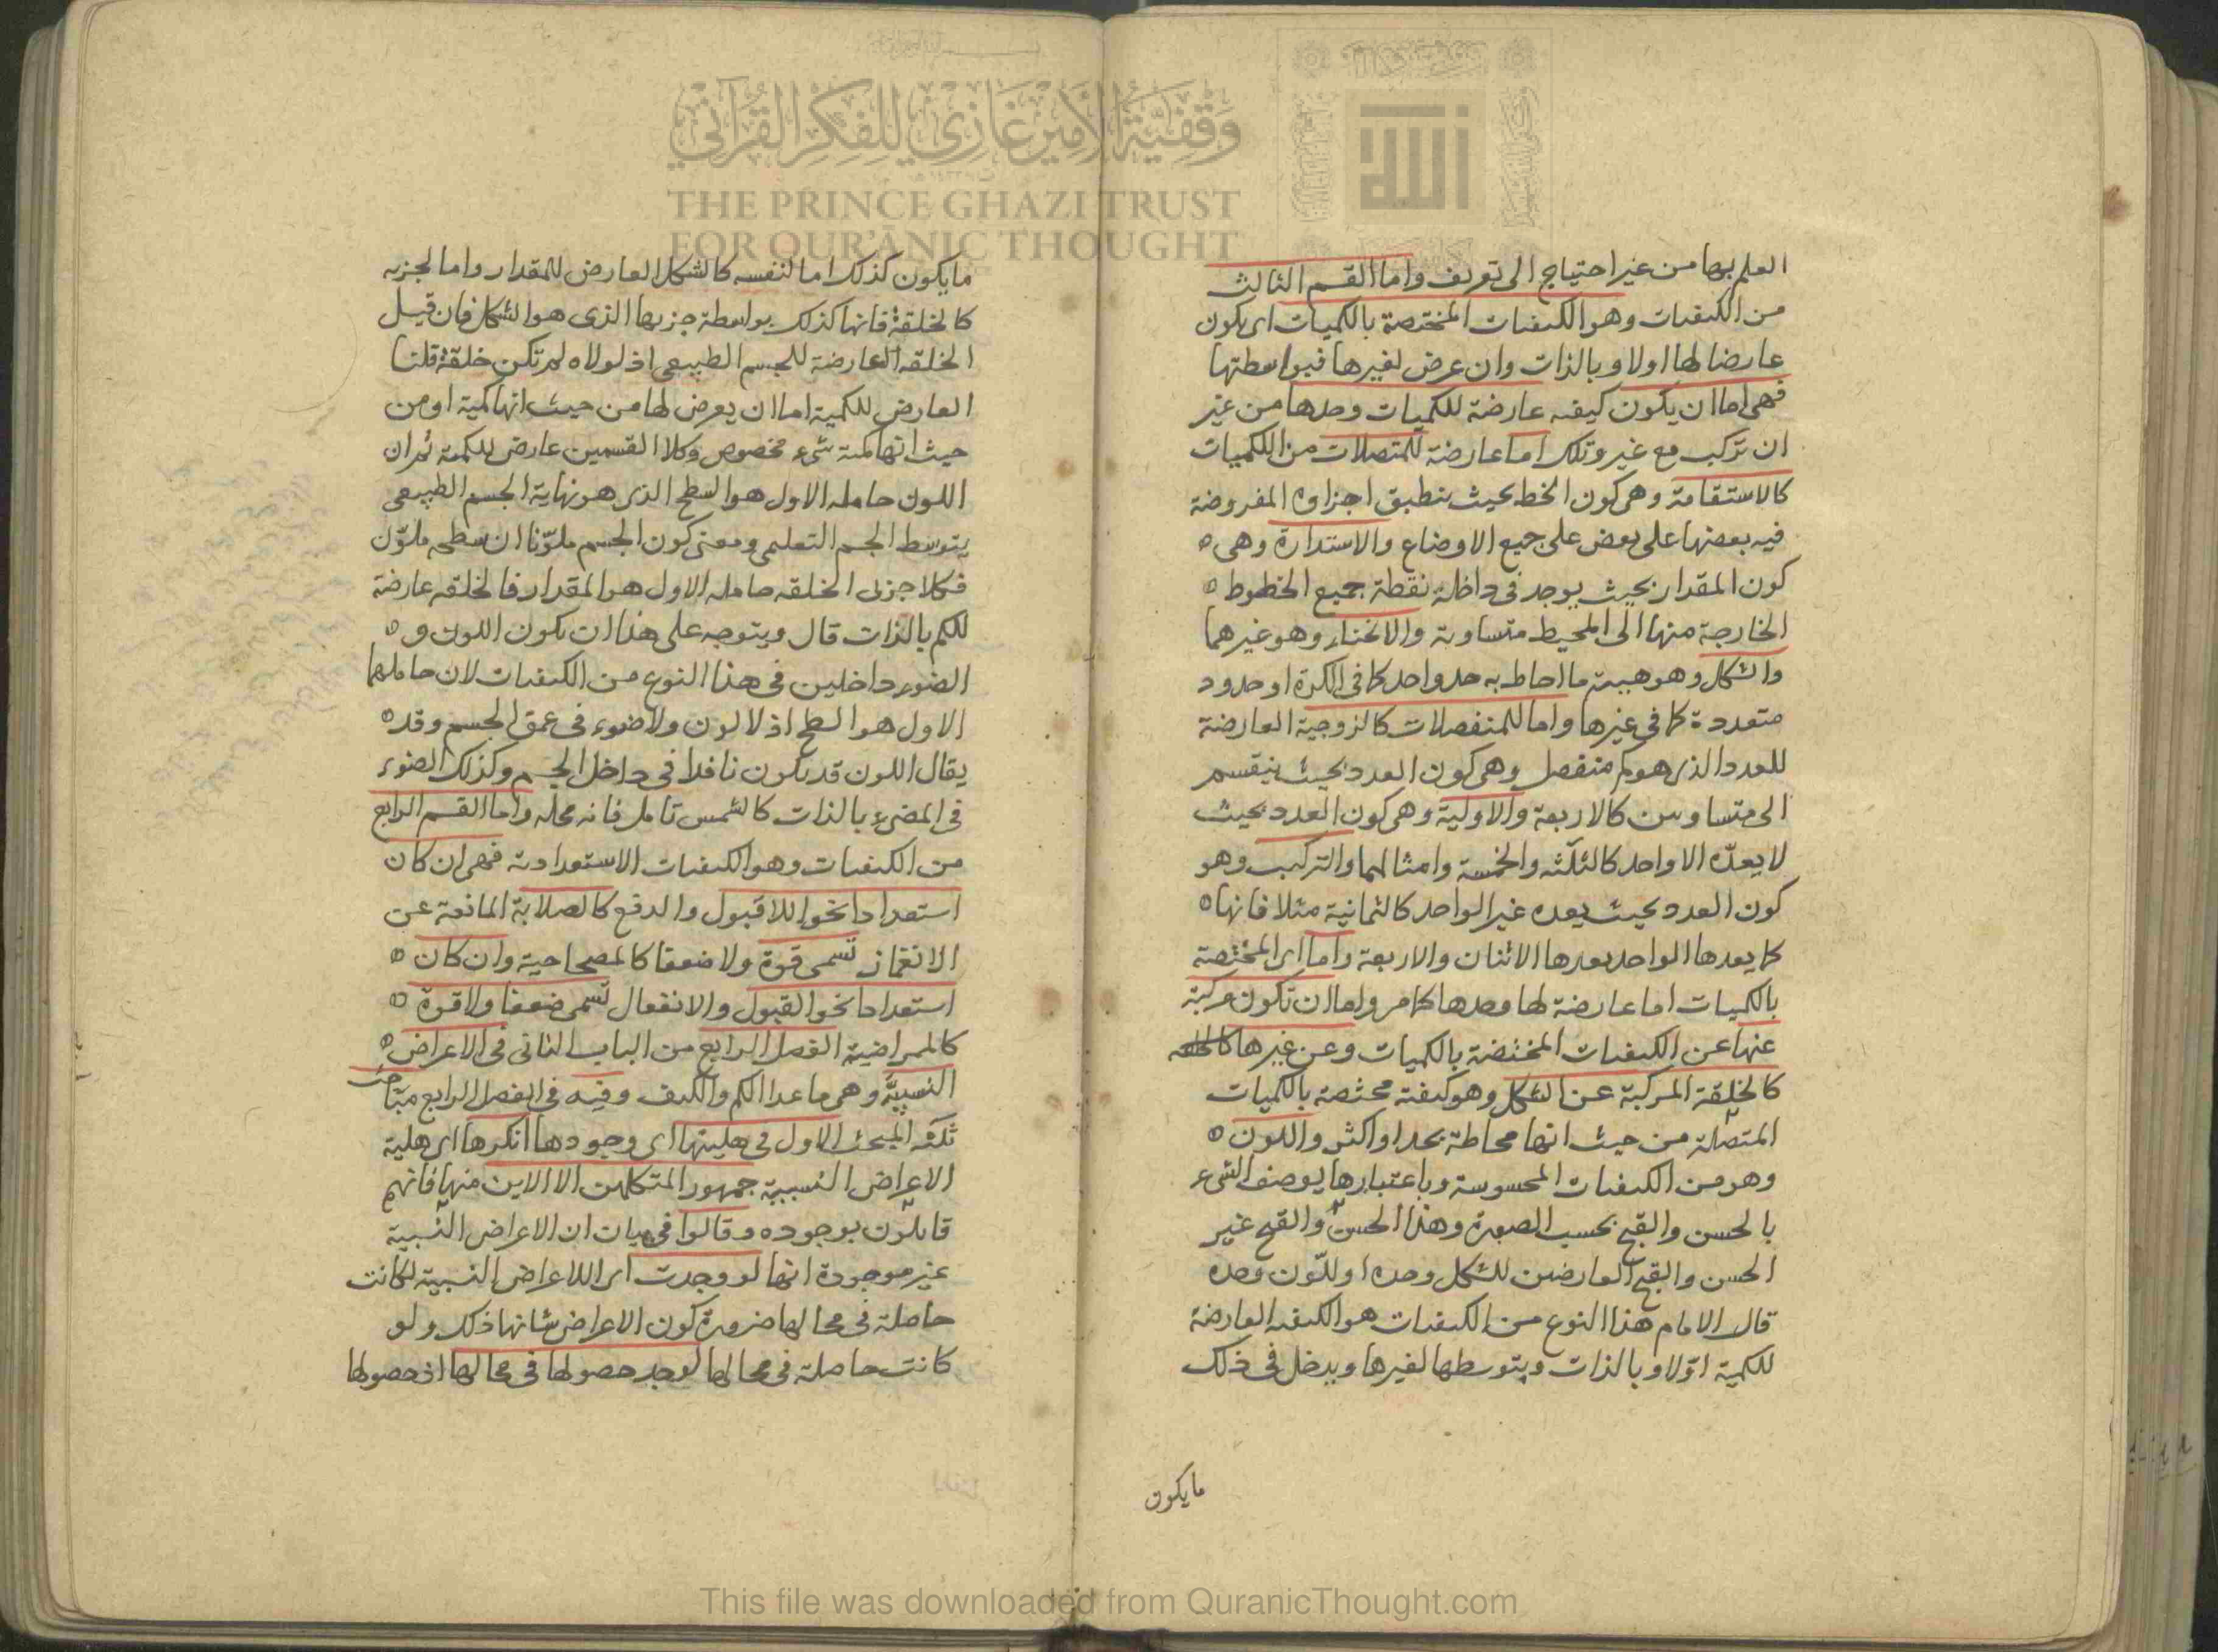 العلم بها من غير احتياج الى تعريف واما القسم الثالث
من الكيفيات وهو الكيفيات المختصة بالكميات اى يكون
عارضا لها اولا وبالذات وان عرض لغيرها فبواسطتها
فهى اما ان يكون كيفيه عارضة للكميات وحدها من غير
ان تركب مع غير وتلك اما عارضة للمتصلات من الكميات
كالاستقامة وهى كون الخط بحيث ينطبق اجزاوه المفروضة
فيه بعضها على بعض على جميع الاوضاع والاستدارة وهى
كون المقدار بحيث يوجد فى داخله نقطة جميع الخطوط
الخارجة منها الى المحيط متساوية والانحناء وهو غيرهما
والشكل وهو هيىة ما احاط به حد واحد كما فى الكرة او حدود
متعددة كما فى غيرها واما للمنفصلات كالزوجية العارضة
للعدد الذى هو كم منفصل وهى كون العدد بحيث ينقسم
الى متساويين كالاربعة والاولية وهى كون العدد بحيث
لا يعدّه الا واحد كالثلثة والخمسة وامثالهما والتركيب وهو
كون العدد بحيث يعده غير الواحد كالثمانية مثلا فانها
كما يعدها الواحد يعدها الاثنان والاربعة واما اى المختصة
بالكميات اما عارضة لها وحدها كما مر واما ان تكون مركبة
عنها عن الكيفيات المختصة بالكميات وعن غيرها
كالخلقة المركبة عن الشكل وهو كيفية مختصة بالكميات
المتصلة من حيث انها محاطة بحد او اكثر واللون
وهو من الكيفيات المحسوسة وباعتبارها يوصف الشىء
بالحسن والقبح بحسب الصورة وهذا الحسن والقبح غير
الحسن والقبح العارضين للشكل وحده او للّون وحده
قال الامام هذا النوع من الكيفيات هو الكيفيه العارضة
للكمية اوّلا وبالذات وبتوسطها لغيرها ويدخل فى ذلك
مايكون
مايكون كذلك اما لنفسه كالشكل العارض للمقدار واما لجزىه
كالخلقة فانها كذلك بواسطة جزىها الذى هو الشكل فان قيل
الخلقه العارضة للجسم الطبيعى اذ لولاه لم تكن خلقة قلنا
العارض للكمية اما ان يعرض لها من حيث انها كمية او من
حيث انها كمية شىء مخصوص وكلا القسمين عارض للكمية ثم ان
اللون حامله الاول هو السطح الذى هو نهاية الجسم الطبيعى
بتوسط الجسم التعليمى ومعنى كون الجسم ملوّنا ان سطحه ملوّن
فكلا جزىى الخلقه حامله الاول هو المقدار فالخلقه عارضة
للكم بالذات قال ويتوجه على هذا ان يكون اللون و
الضوء داخلين فى هذا النوع من الكيفيات لان حاملها
الاول هو السطح اذ لا لون ولا ضوء فى عمق الجسم وقد
يقال اللون قد يكون نافذا فى داخل الجسم وكذلك الضوء
فى المضىء بالذات كالشمس تامل فانه محله واما القسم الرابع
من الكيفيات وهو الكيفيات الاستعدادية فهى ان كان
استعدادا نحو اللاقبول والدفع كالصلابة المانعة عن
الانغماز تسمى قوة ولا ضعفا كالمصحاحية وان كان
استعدادا نحو القبول والانفعال تسمى ضعفا ولا قوة
كالممراضية الفصل الرابع من الباب الثانى فى الاعراض
النسبيّة وهى ما عدا الكم والكيف وفيه فى الفصل الرابع مباحث
ثلثة المبحث الاول فى هليتها اى وجودها انكرها اى هلية
الاعراض النسبية جمهور المتكلمين الا الاين منها فانهم
قايلون بوجوده وقالوا فى بيان ان الاعراض النسبية
غير موجودة انها لو وجدت اى الاعراض النسبية لكانت
حاصلة فى محالها ضرورة كون الاعراض شانها ذلك ولو
كانت حاصلة فى محالها لوجد حصولها فى محالها اذ حصولها
وقفية الأمير غازي للفكر القرآني
THE PRINCE GHAZI TRUST
FOR QUR'ANIC THOUGHT
الله
This file was downloaded from QuranicThought.com